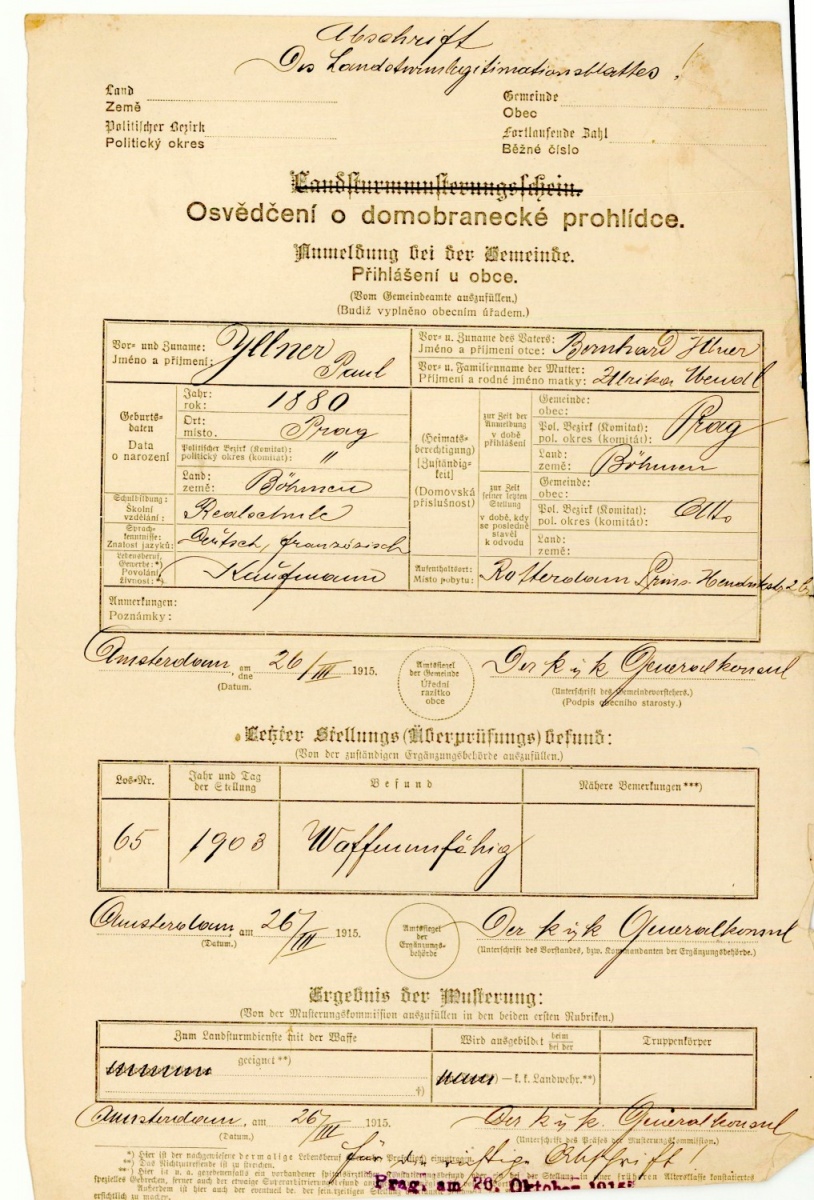 Abschrift
Des Landsturmlegitimationsblattes!
Land
Země
Gemeinde
Obec
Politischer Bezirk
Politický okres
Fortlaufende Zahl
Běžné číslo
Landsturmmusterungsschein.
Osvědčení o domobranecké prohlídce.
Anmeldung bei der Gemeinde.
Přihlášení u obce.
(Vom Gemeindeamte auszufüllen.)
(Budiž vyplněno obecním úřadem.)
Vor- und Zuname:
Jméno a příjmení:
Yllner
Paul
Vor- u. Zuname des Vaters:
Jméno a příjmení otce: Bernhard Yllner
Vor- u. Familienname der Mutter:
Příjmení a rodné jméno matky: Ulrika Wendl
Geburts-
daten
Data
o narození
Jahr:
rok: 1880
Ort:
místo. Prag
Politischer Bezirk (Komitat):
politický okres (komitát): "
Land:
země: Böhmen
(Heimats-
berechtigung)
[Zuständig-
keit]
(Domovská
příslušnost)
zur Zeit der
Anmeldung
v době
přihlášení
Gemeinde:
obec:
Pol. Bezirk (Komitat):
pol. okres (komitát):
Prag
Land:
země: Böhmen
zur Zeit
seiner letzten
Stellung
v době, kdy
se posledně
stavěl
k odvodu
Gemeinde:
obec:
Pol. Bezirk (Komitat):
pol. okres (komitát):
Land:
země:
Schulbildung:
Školní
vzdělání:
Realschule
Sprach-
kenntnisse:
Znalost jazyků:
Deutsch, französisch
Lebensberuf,
Gewerbe:*)
Povolání
živnost:*)
Kaufmann
Aufenthaltsort:
Místo pobytu: Rotterdam Prins Hendrik
Anmerkungen:
Poznámky:
Amsterdam, am
dne 26/III 1915.
(Datum.)
Amtssiegel
der Gemeinde
Úřední
razítko
obce
Der k u k Generalkonsul
(Unterschrift des Gemeindevorstehers.)
(Podpis obecního starosty.)
Letzter Stellungs(Überprüfungs)befund:
(Von der zuständigen Ergänzungsbehörde auszufüllen.)
Los-Nr.
Jahr und Tag
der Stellung
Befund
Nähere Bemerkungen***)
65
1903
Waffenunfähig
Amsterdam, am 26/III 1915.
(Datum.)
Amtssiegel
der
Ergänzungs-
behörde
Der k u k Generalkonsul
(Unterschrift des Vorstandes, bzw. Kommandanten der Ergänzungsbehörde.)
Ergebnis der Musterung:
(Von der Musterungskommission auszufüllen in den beiden ersten Rubriken.)
Zum Landsturmdienste mit der Waffe
Wird ausgebildet beim
bei der
Truppenkörper
geeignet**)
k. k. Landwehr.**)
Amsterdam, am 26/III 1915.
(Datum)
Der k u k. Generalkonsul
(Unterschrift des Präses der Musterungskommission.)
*) Hier ist der nachgewiesene dermalige Lebensberuf
**) Das Nichtzutreffende ist zu streichen.
richtige Abschrift!
Prag, am 26. Oktober 1915